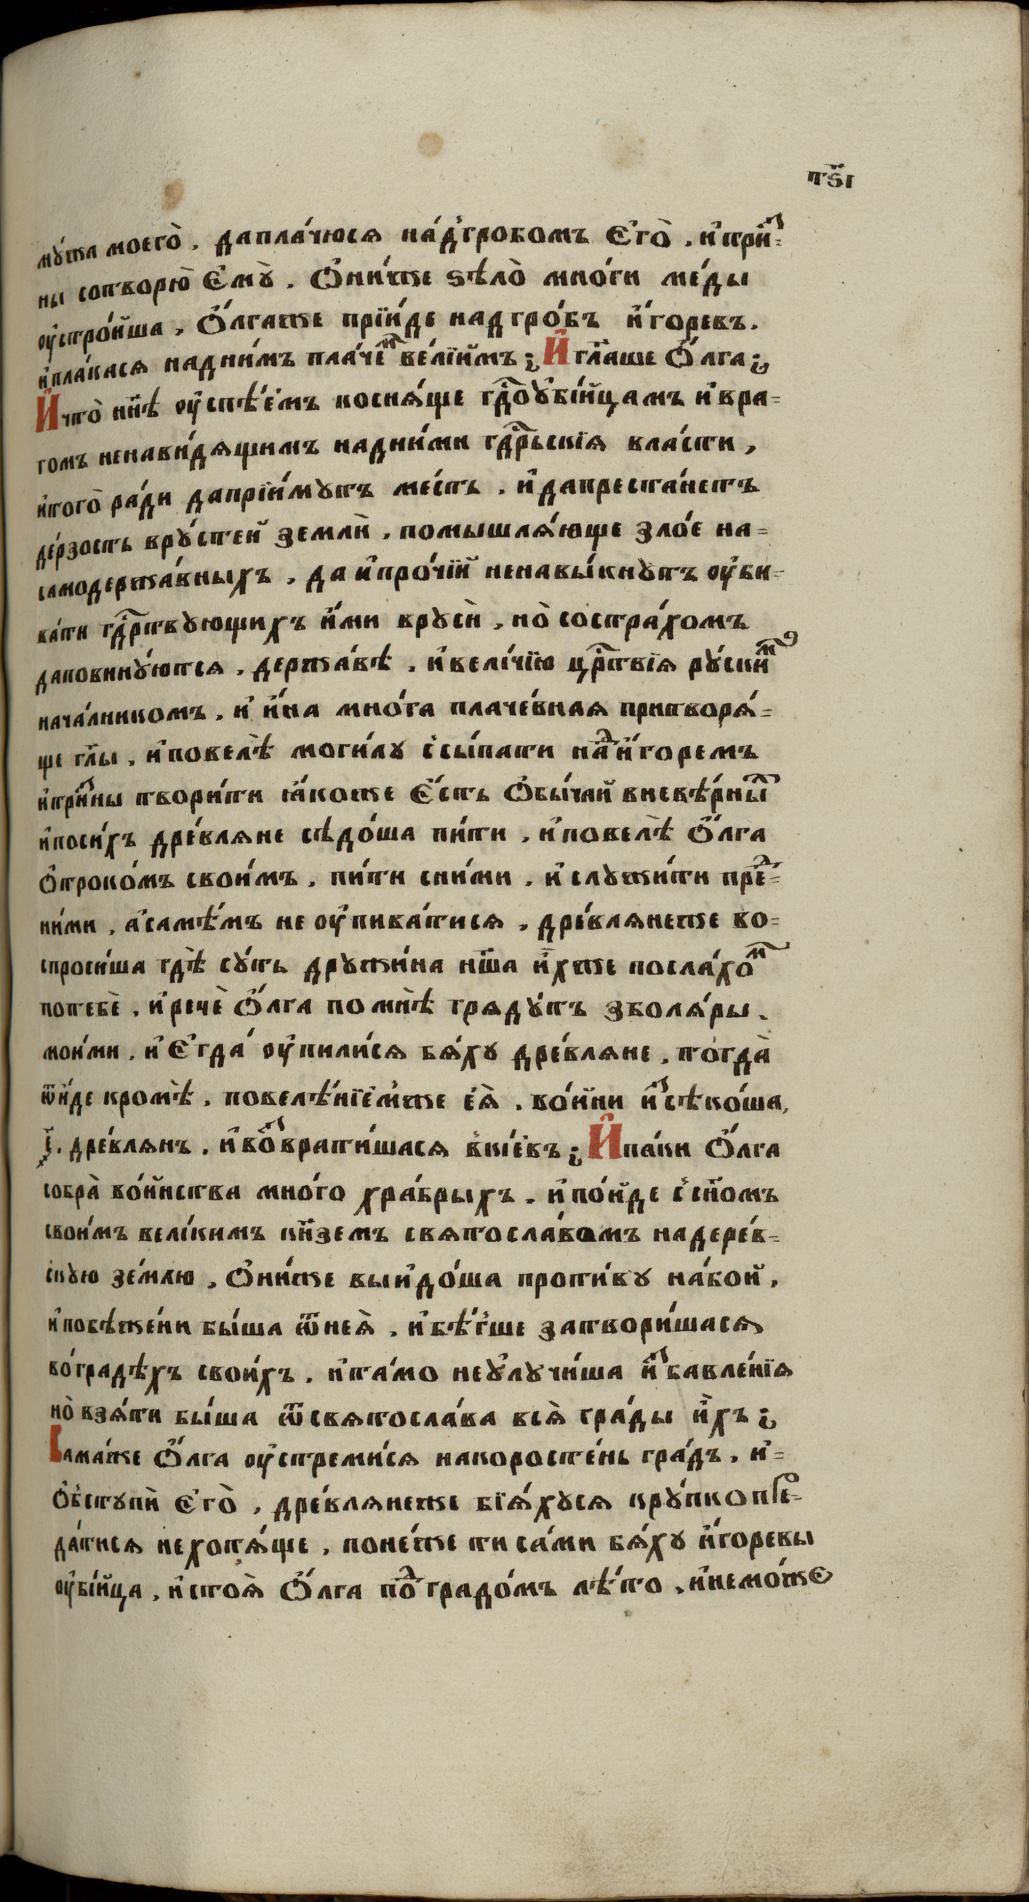 тѕ҃і
му́жа моего̀ . даплачюся на́дгробомъ Єго̀ . и҆ три́з-
ны сотворю̀ Єму̀ . Ѻ҆ни́же ѕѣло̀ мно́ги ме́ды
оу҆стро́йша , Ѻ҆́лгаже прїи́де над гро́бъ и҆́горевъ .
и҆пла́кася надни́мъ пла́чем ве́лїимъ ; И҆ гл҃аше Ѻ҆́лга ;
И҆ что̀ нн҃ѣ оу҆спѣ́ємъ косня́ще гдⷭ҇роубі́йцамъ и҆ вра-
гомъ ненави́дящимъ надни́ми гдⷭ҇рьскїя вла́сти ,
и҆того̀ ра́ди даприи́мутъ ме́сть . и҆ дапреста́нетъ
де́рзость вру́стей земли̂ . помышля́юще зло́е на-
самодержа́вныхъ . да и҆про́чїи ненавы́кнутъ оу҆би-
ва́ти гдⷭ҇рствующихъ и҆́ми вруси̂ , но̀ сострахомъ
даповину́ются . держа́вѣ . и҆вели́чїю црⷭ҇твїя ру́скимъ
нача́лникомъ . и҆ и҆́на мно́га плаче́вная притворя́-
ще гл҃ы . и҆повелѣ̀ моги́лу ссы́пати над и҆́горемъ
и҆тризны твори́ти ꙗ҆́коже Є҆́сть Ѻ҆бы́чай вневѣ́рных
и҆поси́хъ дре́вляне сѣдо́ша пи́ти . и҆повелѣ̀ Ѻ҆́лга
ѻ҆троко́мъ свои́мъ . пи́ти сни́ми . и҆ служи́ти пред-
ни́ми , а҆самѣ́мъ не оу҆пива́тися . дре́влянеже во-
спроси́ша гдѣ̀ су́ть дружи́на нш҃а и҆́хже посла́хом
потебѐ . и҆ речѐ Ѻ҆́лга по мнѣ̀ гряду́тъ зболя́ры .
мои́ми . и҆ Є҆гда́ оу҆пили́ся бя́ху дре́вляне . тогда̀
ѿи́де кромѣ̀ . повелѣ́нїємже єя̀ . во́йни и҆зсѣко́ша ,
҂е҃ . дре́влянъ . и҆ возврати́шася вкі́евъ ; И҆ па́ки Ѻ҆́лга
собра̀ во́йнства мно́го хра́брыхъ . и҆ по́йде с сн҃омъ
свои́мъ вели́кимъ кн҃земъ святосла́вомъ надере́в-
скую зе́млю . Ѻ҆ни́же выидо́ша проти́ву на́бой .
и҆побѣже́ни бы́ша ѿнея̀ . и҆ бѣ́гше затвори́шася
во́градѣхъ свои́хъ . и҆та́мо неулучи́ша и҆збавле́нїя
но̀ взя́ти бы́ша ѿ святосла́ва вся̀ гра́ды и҆́хъ ;
Сама́же Ѻ҆́лга оу҆стреми́ся накоросте́нь гра́дъ . и҆-
ѻ҆бступи̂ Єго̀ , дре́влянеже бїя́хуся кру́пко пре-
да́тися нехотя́ще . поне́же ти са́ми бя́ху и҆́горевы
оу҆бі́йца . и҆ стоя̀ Ѻ҆́лга под градо́мъ лѣ́то . и҆немо́же